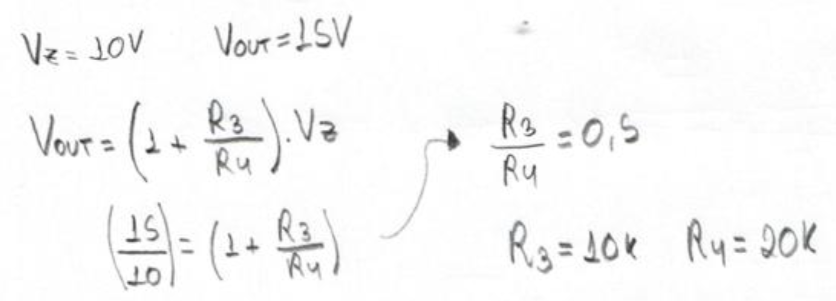 Vz = 10V Vout = 15V
Vout = (1 + R3/R4) · Vz
(15/10) = (1 + R3/R4)
R3/R4 = 0,5
R3 = 10k R4 = 20K